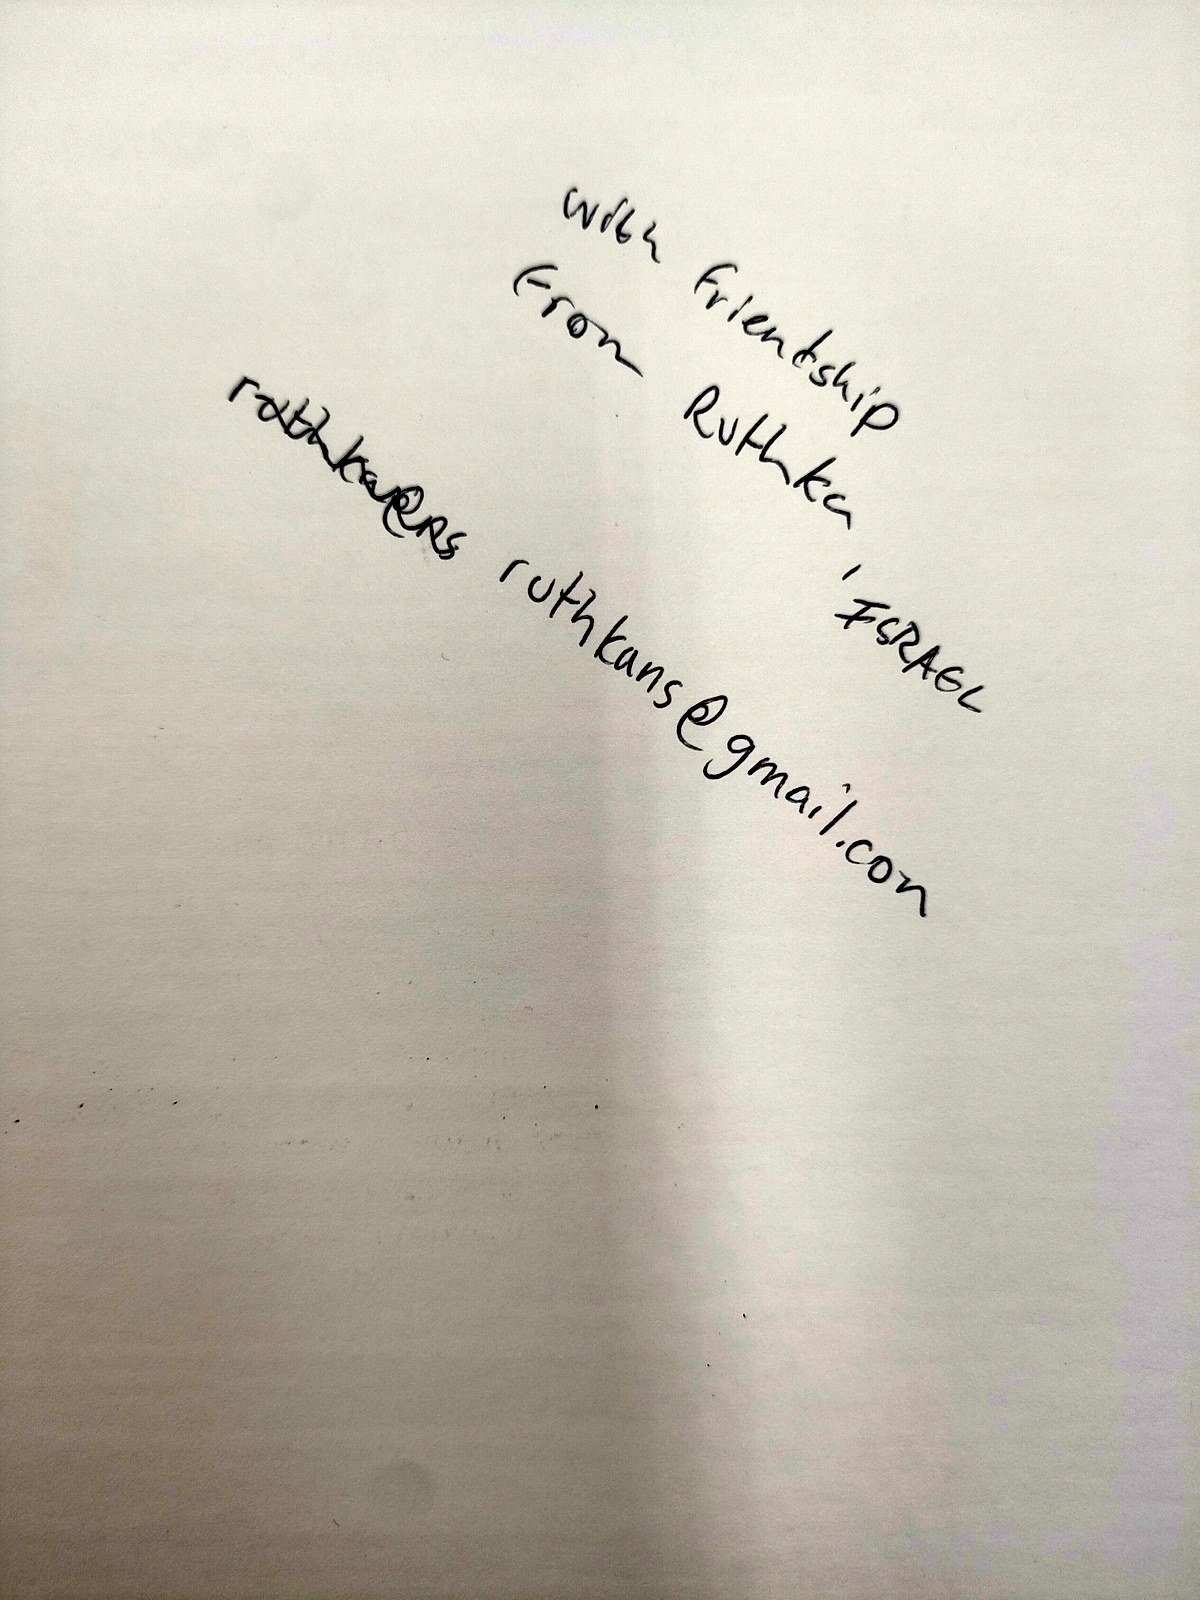 with friendship
From Ruthka, ISRAEL
ruthkans@gmail.com